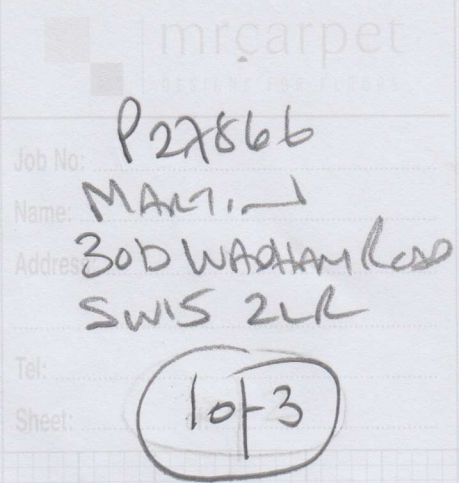 mrcarpet
DESIGNS FOR FLOORS
Job No: P27866
Name: MARTIN
Address: 30D WADHAM ROAD
SW15 2LR
Tel:
Sheet: 1 of 3